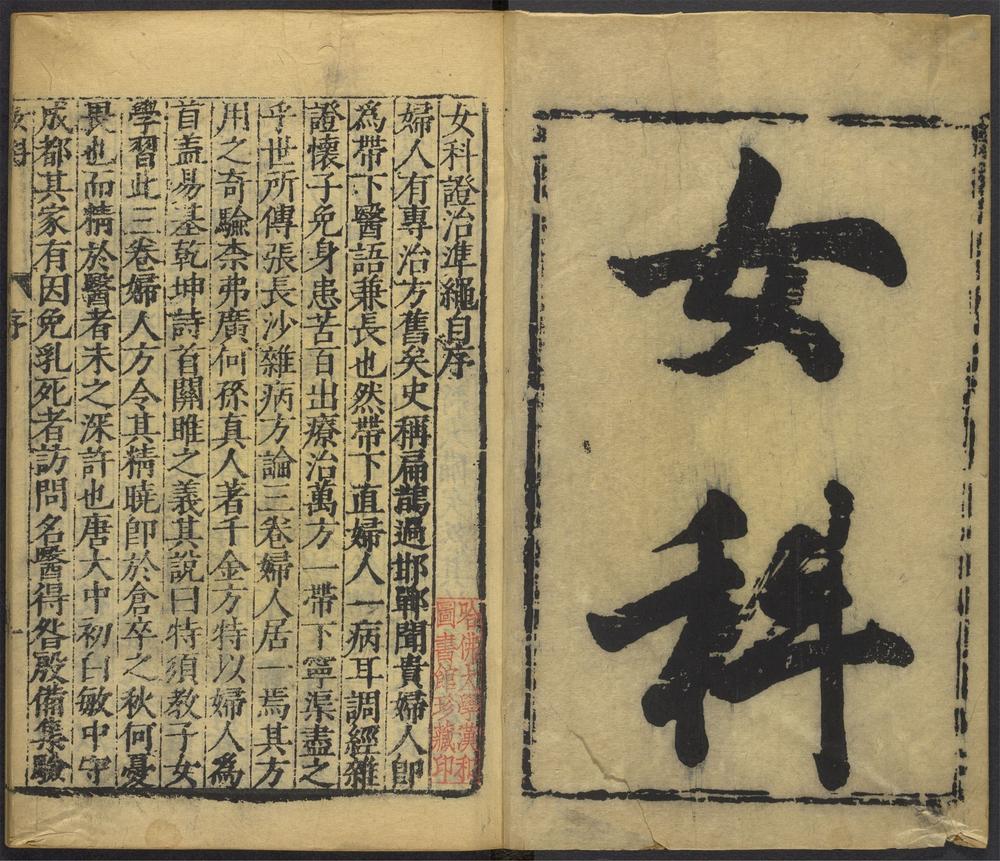 女科
女科證治準繩自序
婦人有專治方舊矣史稱扁鵲過邯鄲聞貴婦人卽
爲帶下醫語兼長也然帶下直婦人一病耳調經雜
證懷子免身患苦百出療治萬方一帶下寧渠盡之
乎世所傳張長沙雜病方論三卷婦人居一焉其方
用之奇驗柰弗廣何孫真人著千金方特以婦人爲
首盖易基乾坤詩首關雎之義其說曰特須教子女
學習此三卷婦人方令其精曉卽於倉卒之秋何憂
畏也而精於醫者未之深許也唐大中初白敏中守
成都其家有因免乳死者訪問名醫得昝殷備集驗
序
一
哈佛大學漢和
圖書館珍藏印